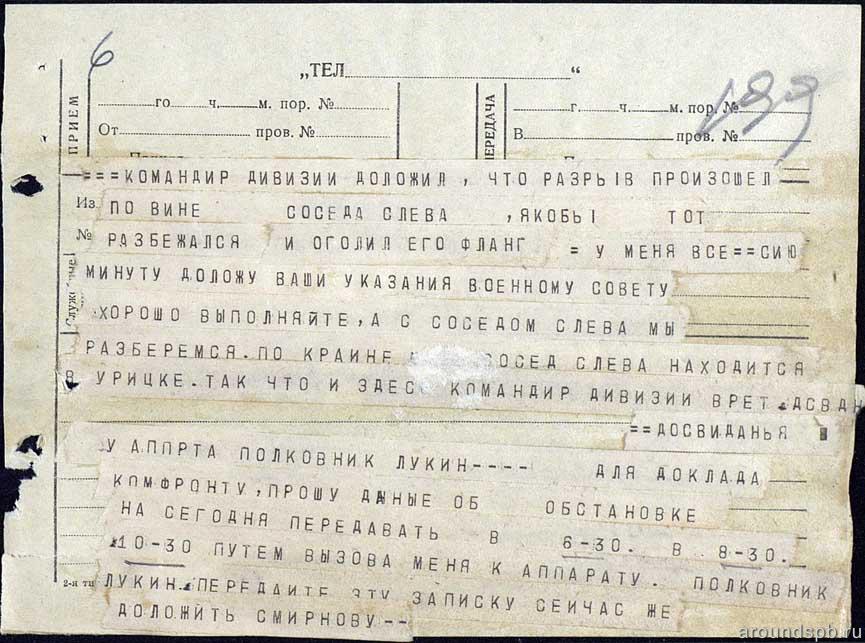 6
„ТЕЛ“
ПРИЕМ
го ч. м. пор. №
От пров. №
ПЕРЕДАЧА
г. ч. м. пор. №
В пров. №
===КОМАНДИР ДИВИЗИИ ДОЛОЖИЛ, ЧТО РАЗРЫВ ПРОИЗОШЕЛ
Из ПО ВИНЕ СОСЕДА СЛЕВА ,ЯКОБЫ ТОТ
№ РАЗБЕЖАЛСЯ И ОГОЛИЛ ЕГО ФЛАНГ = У МЕНЯ ВСЕ==СИЮ
МИНУТУ ДОЛОЖУ ВАШИ УКАЗАНИЯ ВОЕННОМУ СОВЕТУ
ХОРОШО ВЫПОЛНЯЙТЕ,А С СОСЕДОМ СЛЕВА МЫ
РАЗБЕРЕМСЯ.ПО КРАИНЕ СОСЕД СЛЕВА НАХОДИТСЯ
В УРИЦКЕ.ТАК ЧТО И ЗДЕС КОМАНДИР ДИВИЗИИ ВРЕТ.ДСВДАН
==ДОСВИДАНЬЯ
У АППРТА ПОЛКОВНИК ЛУКИН---- ДЛЯ ДОКЛАДА
КОМФРОНТУ,ПРОШУ ДАННЫЕ ОБ ОБСТАНОВКЕ
НА СЕГОДНЯ ПЕРЕДАВАТЬ В 6-30. В 8-30.
10-30 ПУТЕМ ВЫЗОВА МЕНЯ К АППАРАТУ. ПОЛКОВНИК
2-я ти ЛУКИН.ПЕРЕДАИТЕ ЭТУ ЗАПИСКУ СЕИЧАС ЖЕ
ДОЛОЖИТЬ СМИРНОВУ--
aroundspb.ru